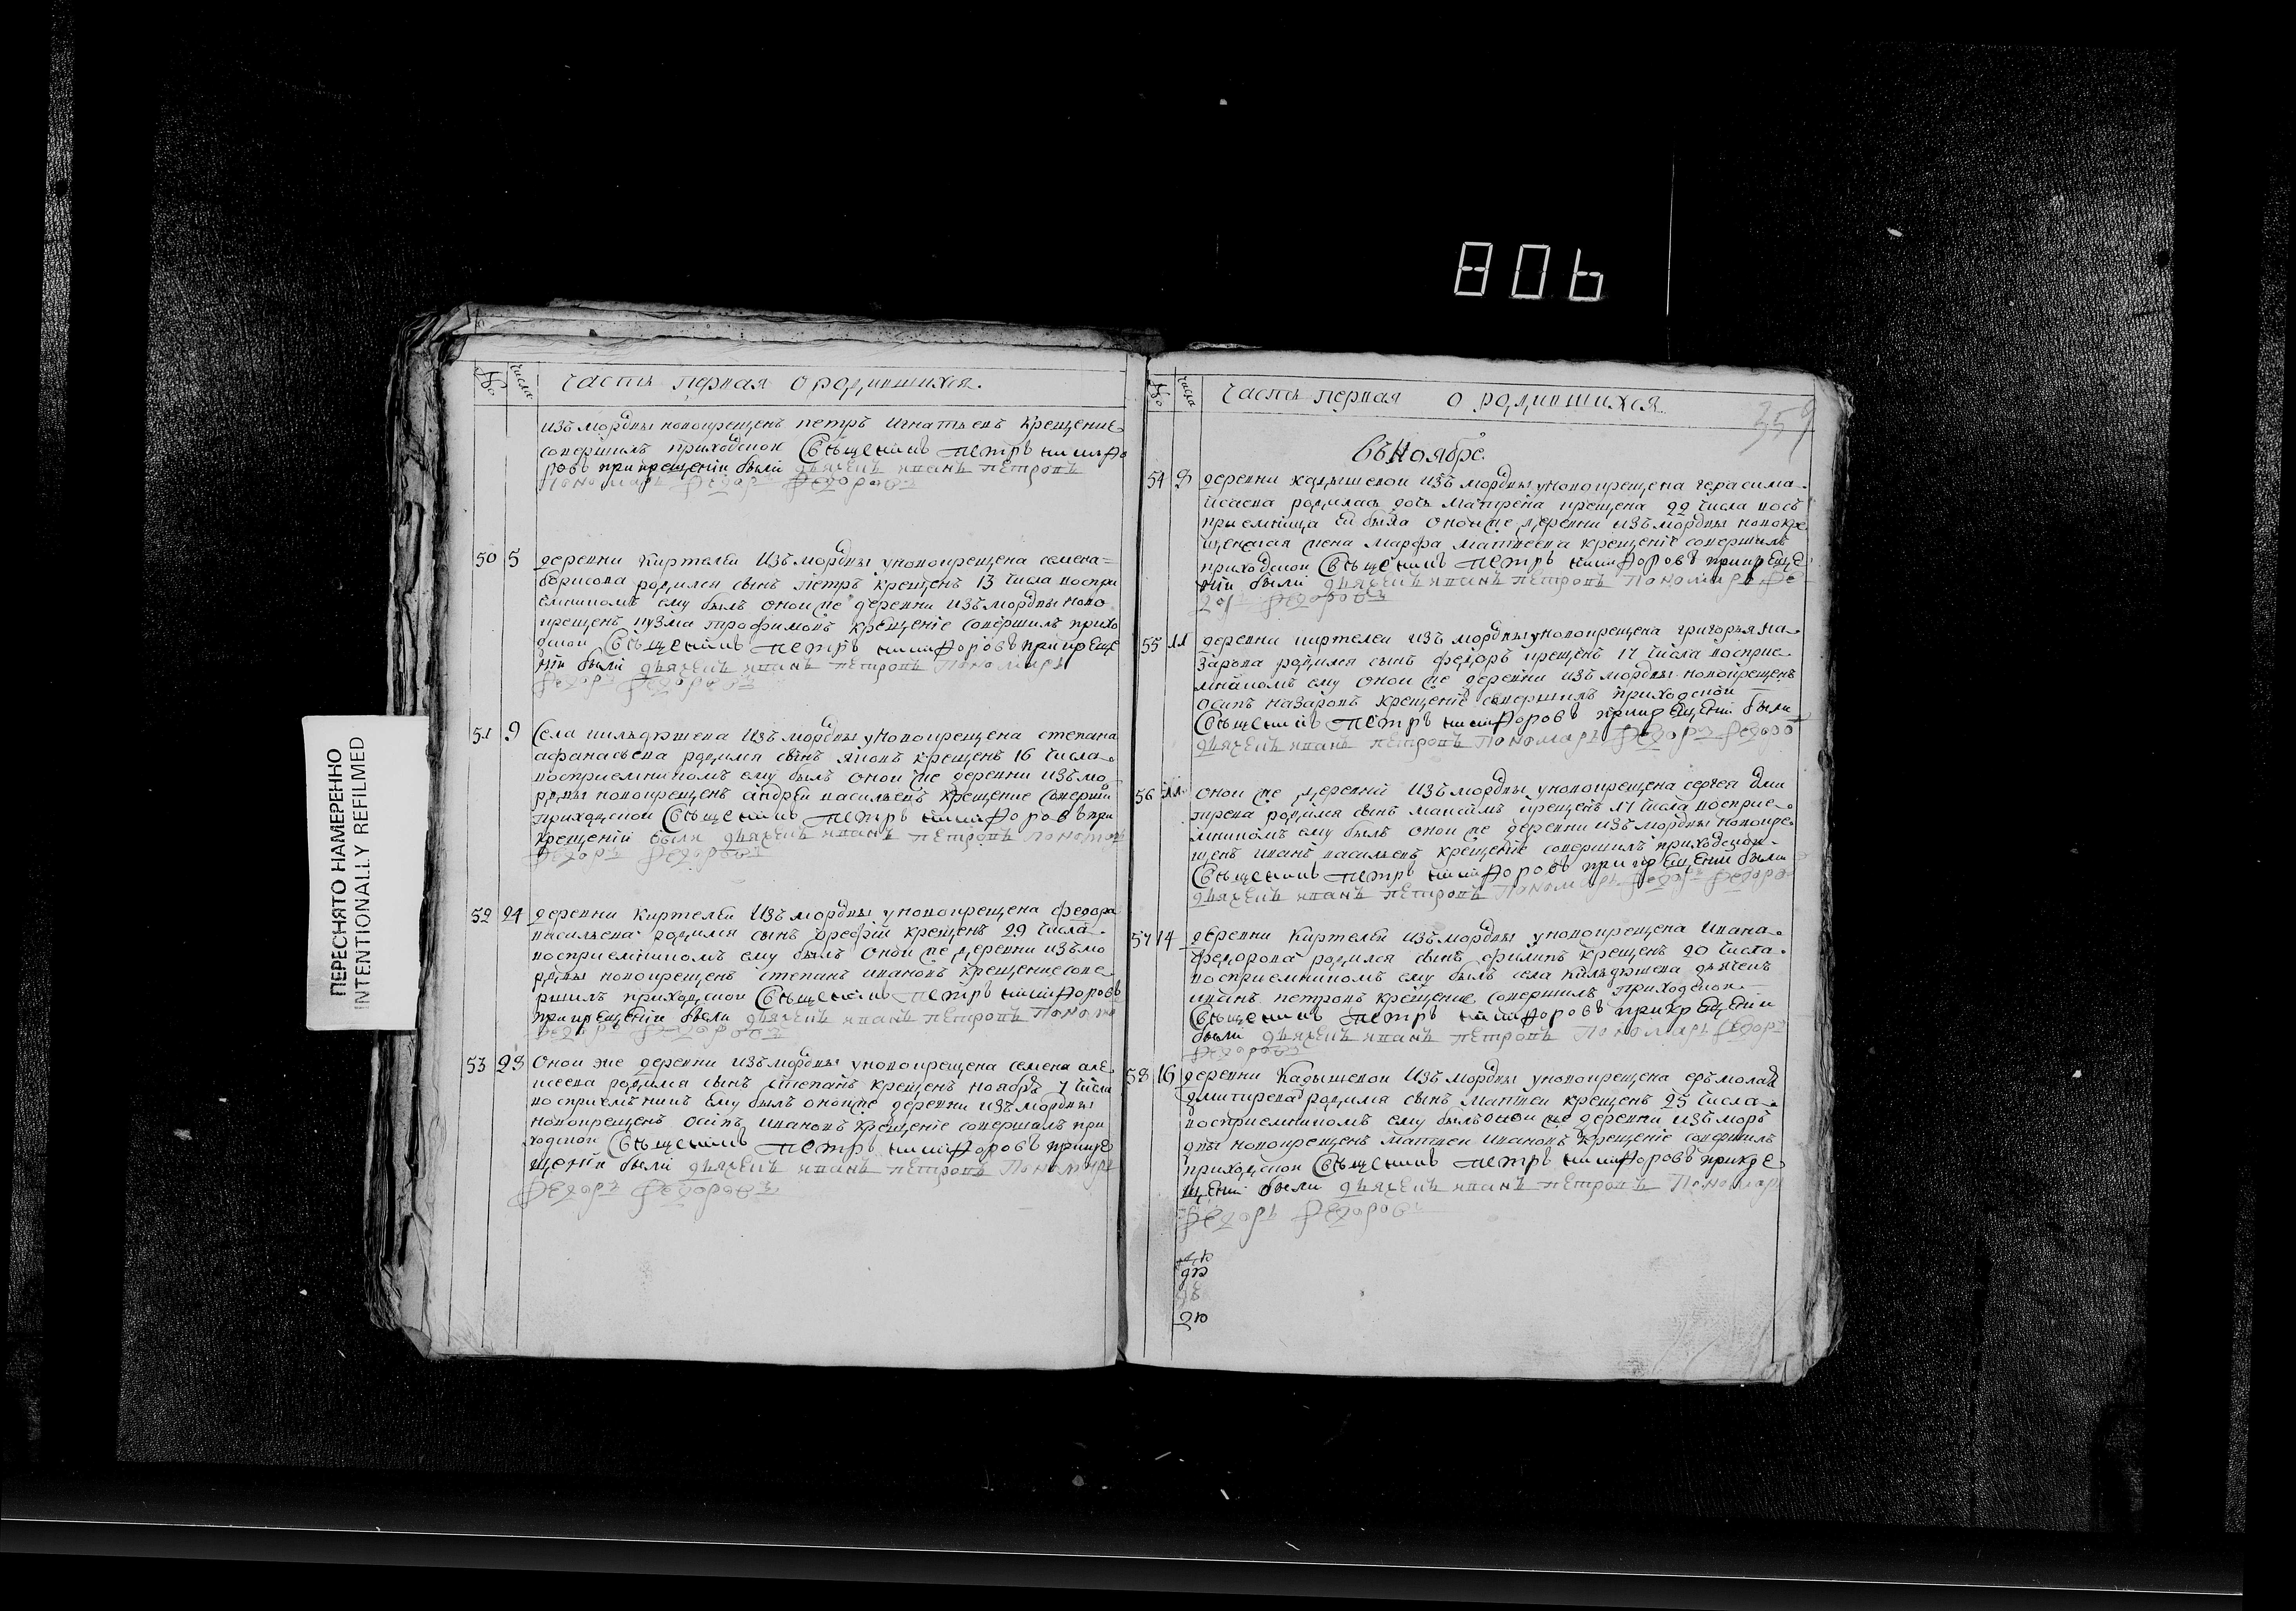 806
ПЕРЕСНЯТО НАМЕРЕННО
INTENTIONALLY REFILMED
№ числа Часть первая о родившихся.
изъ мордвы новокрещенъ петръ игнатьевъ крещение
совершилъ приходскои Священникъ Петръ Никифо
ровъ при крещении были дьячекъ иванъ петровъ
Пономарь Федоръ Федоровъ
50 5 деревни Киртелеи изъ мордвы у новокрещена семена
борисова родился сынъ петръ крещенъ 13 числа воспри
емникомъ ему былъ онои же деревни изъ мордвы ново
крещенъ кузма трофимовъ крещение совершилъ прихо
дскои Священникъ Петръ Никифоровъ при креще
нии были дьячекъ иванъ петровъ Пономарь
Федоръ Федоровъ
51 9 Села кильдюшева изъ мордвы у новокрещена степана
афанасьева родился сынъ яковъ крещенъ 16 числа
восприемникомъ ему былъ онои же деревни изъ мо
рдвы новокрещенъ андреи васильевъ крещение соверши
приходскои Священникъ Петръ Никифоровъ при
крещении были дьячекъ иванъ петровъ Пономарь
Федоръ Федоровъ
52 24 деревни Киртелеи изъ мордвы у новокрещена федора
васильева родился сынъ крещенъ 29 числа
восприемникомъ ему былъ онои же деревни изъ мо
рдвы новокрещенъ степанъ ивановъ крещение сове
ршилъ приходскои Священникъ Петръ Никифоровъ
при крещении были дьячекъ иванъ петровъ Поном
Федоръ Федоровъ
53 28 Онои же деревни изъ мордвы у новокрещена семена але
ксеева родился сынъ степанъ крещенъ ноября 1 числа
восприемникъ ему былъ онои же деревни изъ мордвы
новокрещенъ осипъ ивановъ крещение совершилъ при
ходскои Священникъ Петръ Никифоровъ при кре
щении были дьячекъ иванъ петровъ Пономарь
Федоръ Федоровъ
№ числа Часть первая о родившихся
359
Въ Ноябре
54 8 деревни кадышевои изъ мордвы у новокрещена герасима
исаева родилась дочь матрена крещена 22 числа вось
приемница ей была онои же деревни изъ мордвы новокре
щенская жена марфа матвеева крещение совершилъ
приходскои Священникъ Петръ Никифоровъ при креще
нии были дьячекъ иванъ петровъ Пономарь Фе
доръ Федоровъ
55 11 деревни киртелеи изъ мордвы у новокрещена григорья на
зарова родился сынъ федоръ крещенъ 17 числа восприе
мникомъ ему онои же деревни изъ мордвы новокрещенъ
осипъ назаровъ крещение совершилъ приходскои
Священникъ Петръ Никифоровъ при крещении были
дьячекъ иванъ петровъ Пономарь Федоръ Федоро
56 11 онои же деревни изъ мордвы у новокрещена сергея дми
трева родился сынъ максимъ крещенъ 17 числа восприе
мникомъ ему былъ онои же деревни изъ мордвы новокре
щенъ иванъ васильевъ крещение совершилъ приходскои
Священникъ Петръ Никифоровъ при крещении были
дьячекъ иванъ петровъ Пономарь Федоръ Федоро
57 14 деревни Киртелеи изъ мордвы у новокрещена ивана
федорова родился сынъ филипъ крещенъ 20 числа
восприемникомъ ему былъ села кильдюшева дьячекъ
иванъ петровъ крещение совершилъ приходскои
Священникъ Петръ Никифоровъ при крещении
были дьячекъ иванъ петровъ Пономарь Федоръ
Федоровъ
58 16 деревни Кадышевои изъ мордвы у новокрещена ермолая
дмитрева родился сынъ матвеи крещенъ 25 числа
восприемникомъ ему былъ онои же деревни изъ моръ
двы новокрещенъ матвеи ивановъ крещение совершилъ
приходскои Священникъ Петръ Никифоровъ при кре
щении были дьячекъ иванъ петровъ Пономарь
Федоръ Федоровъ